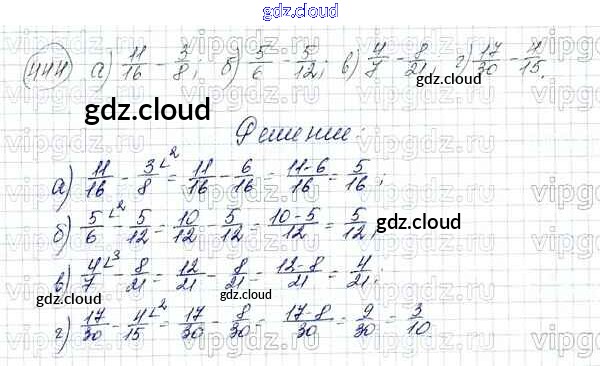 gdz.cloud
444 а) 11/16 - 3/8; б) 5/6 - 5/12; в) 4/7 - 8/21; г) 17/30 - 4/15.
gdz.cloud
Решение:
а) 11/16 - 3/8 ∟2 = 11/16 - 6/16 = 11-6/16 = 5/16;
gdz.cloud
б) 5/6 ∟2 - 5/12 = 10/12 - 5/12 = 10-5/12 = 5/12;
gdz.cloud
в) 4/7 ∟3 - 8/21 = 12/21 - 8/21 = 12-8/21 = 4/21;
gdz.cloud
gdz.cloud
г) 17/30 - 4/15 ∟2 = 17/30 - 8/30 = 17-8/30 = 9/30 = 3/10
vipgdz.com